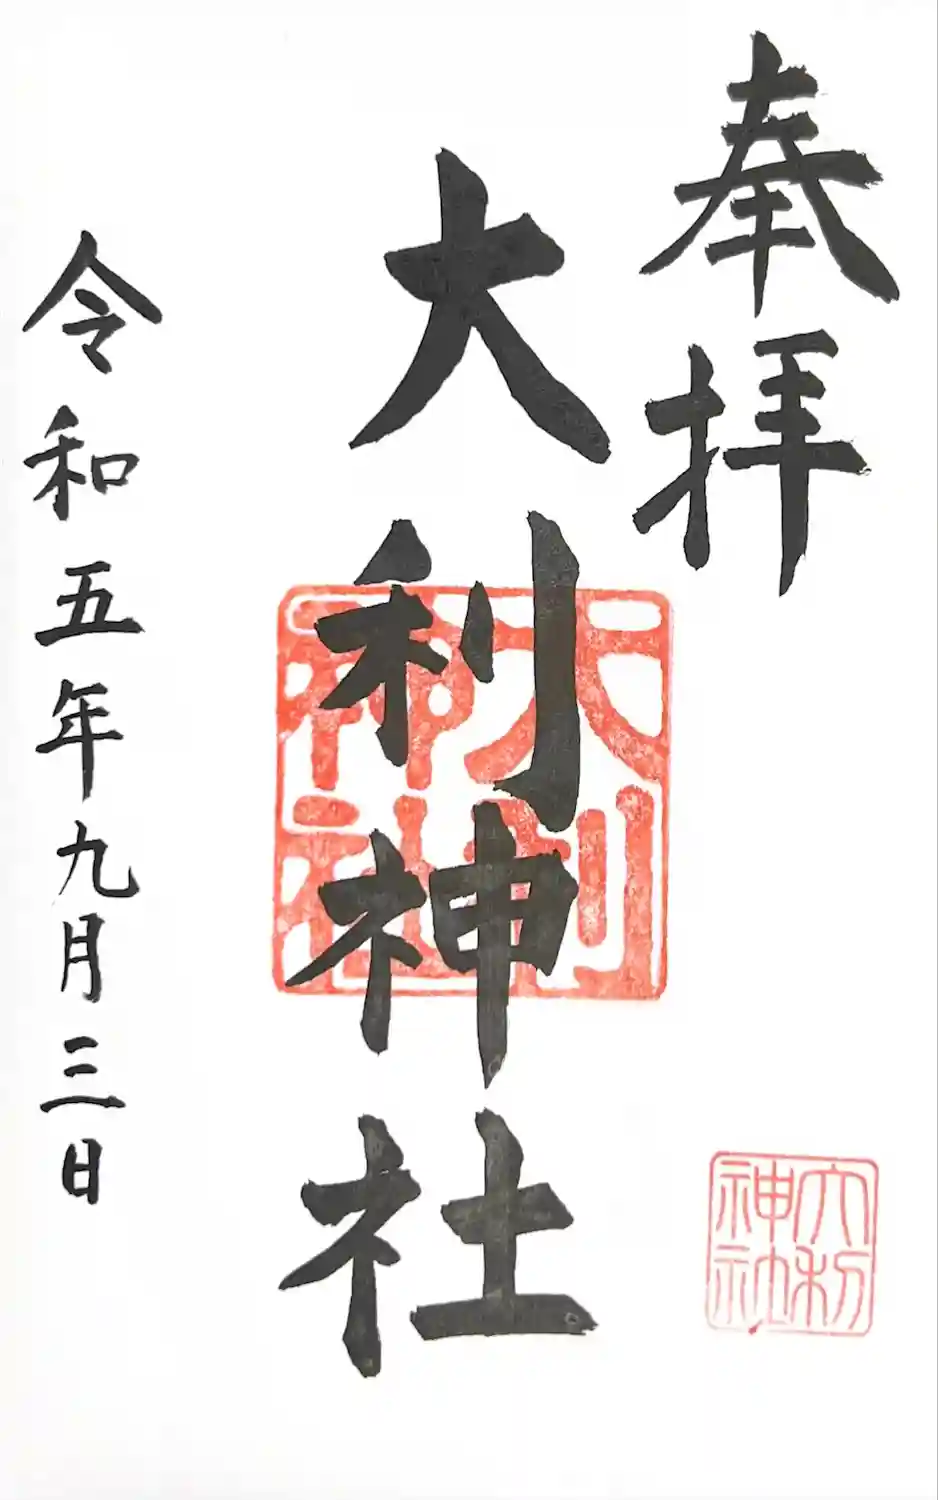 奉拝
大利神社
大利神社
大利神社
令和五年九月三日